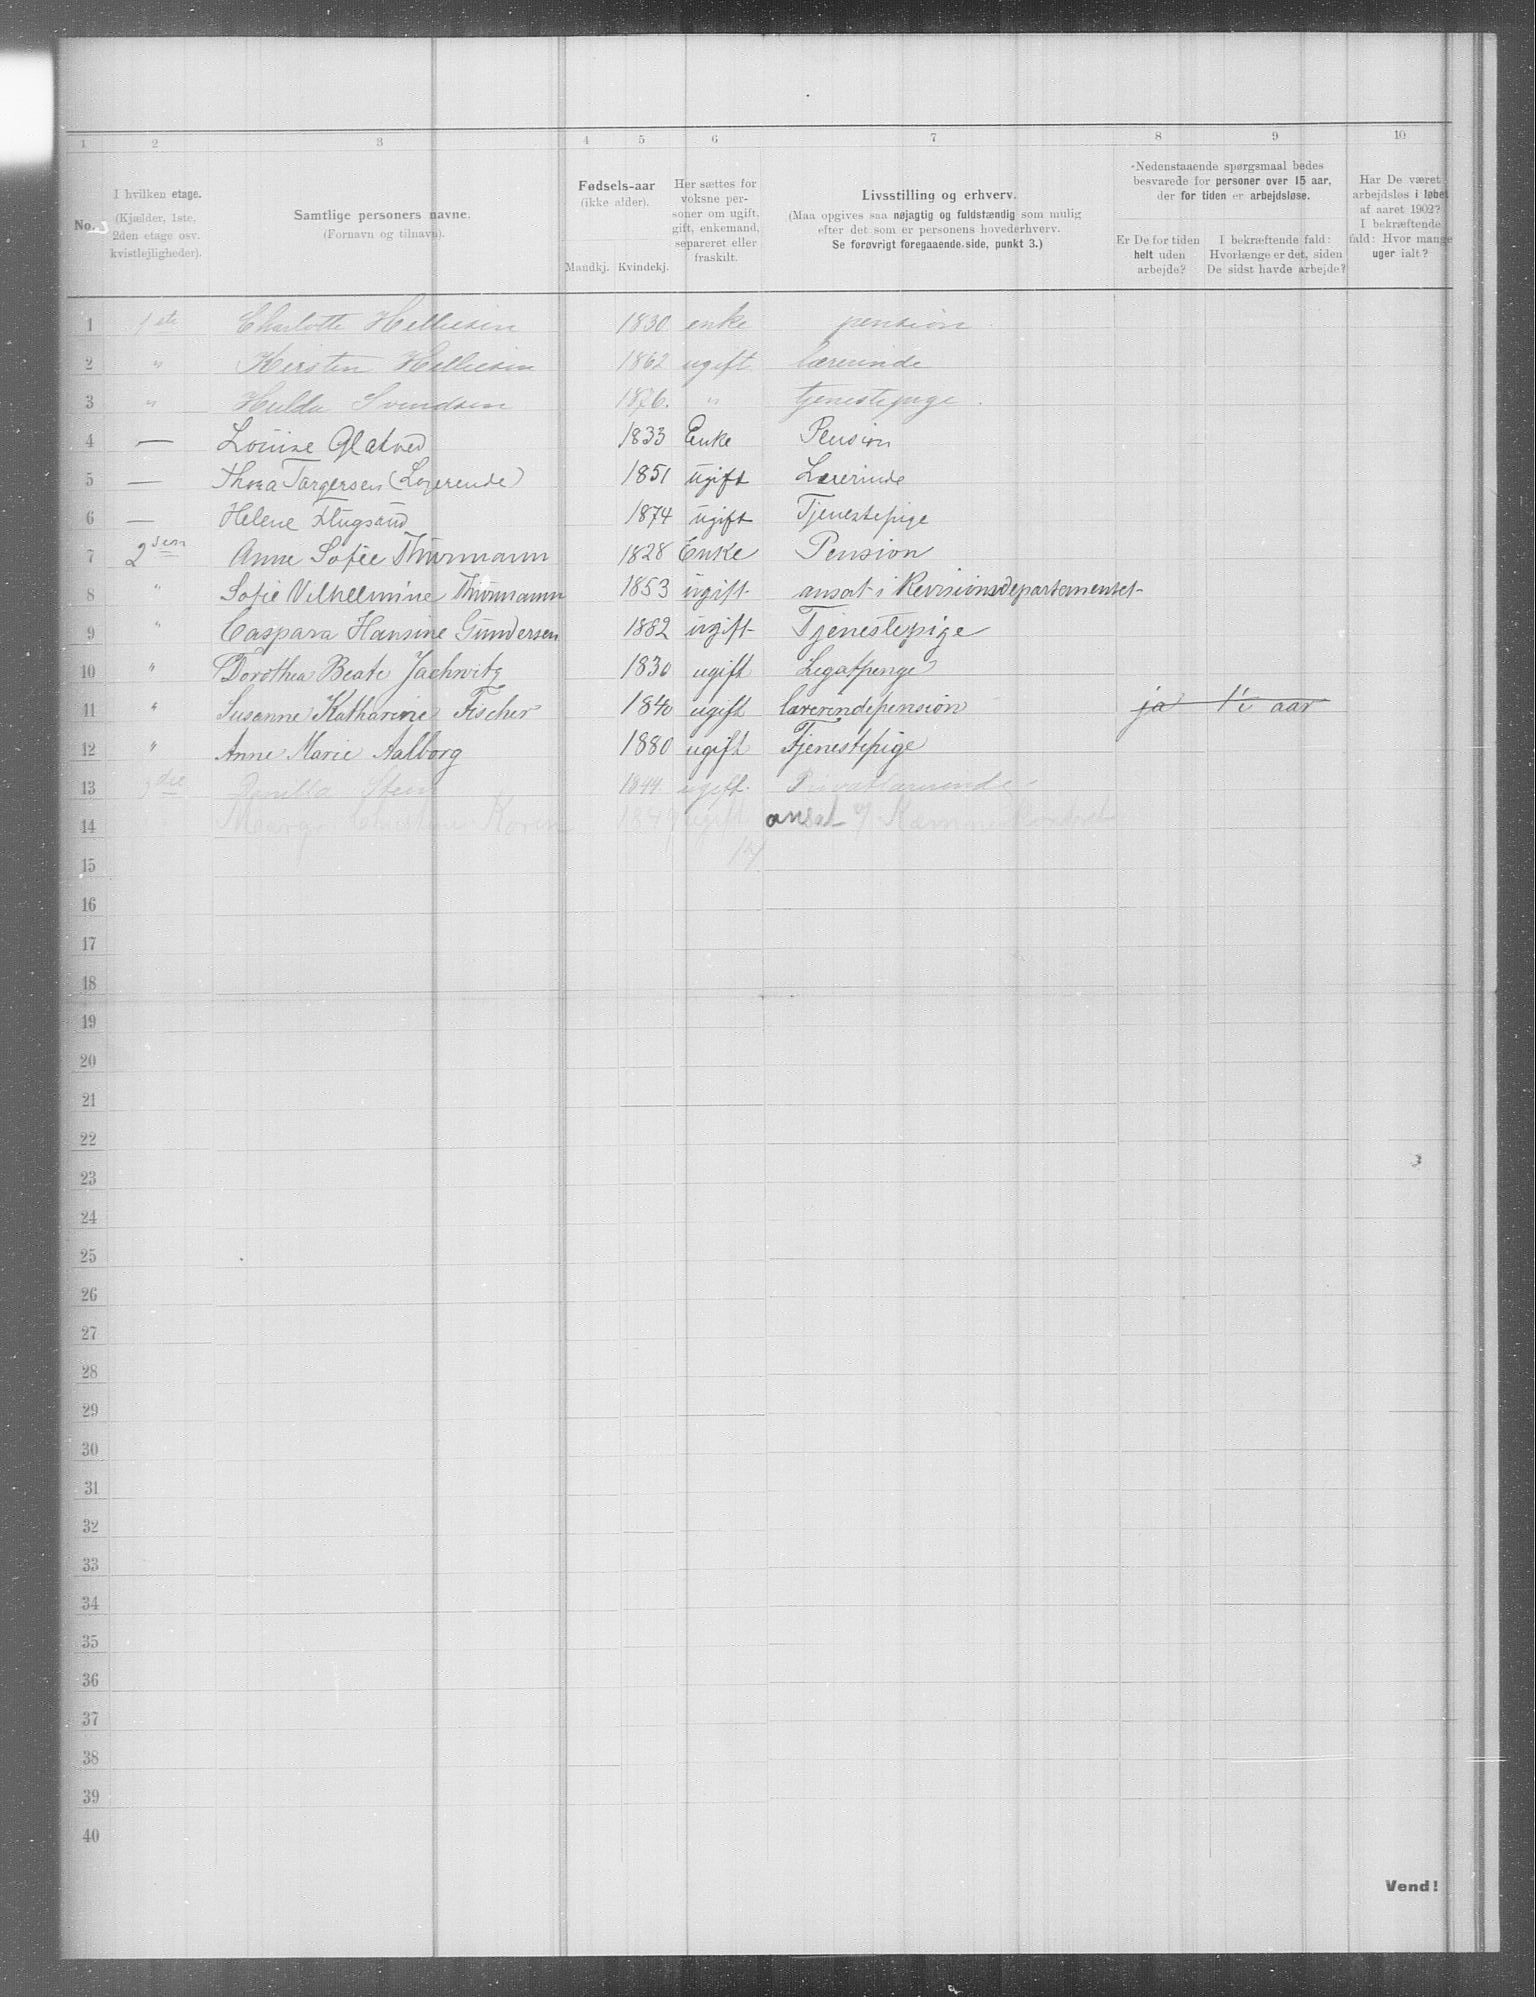 1 2 3 4 5 6 7 8 9 10
No.
I hvilken etage.
(Kjælder, 1ste,
2den etage osv.
kvistlejligheder).
Samtlige personers navne.
(Fornavn og tilnavn).
Fødsels-aar
(ikke alder).
Mandkj. Kvindekj.
Her sættes for
voksne per-
soner om ugift,
gift, enkemand,
separeret eller
fraskilt.
Livsstilling og erhverv.
(Maa opgives saa nøjagtig og fuldstændig som mulig
efter det som er personens hovederhverv.
Se forøvrigt foregaaende side, punkt 3.)
Nedenstaaende spørgsmaal bedes
besvarede for personer over 15 aar,
der for tiden er arbejdsløse.
Er De for tiden
helt uden
arbejde?
I bekræftende fald:
Hvorlænge er det, siden
De sidst havde arbejde?
Har De været
arbejdsløs i løbet
af aaret 1902?
I bekræftende
fald: Hvor mange
uger ialt?
1 1ste Charlotte Helliesen 1830 enke pension.
2 " Kirsten Helliesen 1862 ugift lærerinde
3 " Hulda Svendsen 1876. " tjenestepige.
4 — Louise Glatved 1833 Enke Pension
5 — Thora Torgersen (Logerende) 1851 ugift Lærerinde
6 — Helene Flugsrud 1874 ugift Tjenestepige
7 2den Anne Sofie Thurmann 1828 Enke Pension
8 " Sofie Vilhelmine Thurmann 1853 ugift ansat i Revisionsdepartementet
9 " Caspara Hansine Gundersen 1882 ugift Tjenestepige
10 " Dorothea Beate Jachwitz 1830 ugift Legatpenge
11 " Susanne Katharine Fischer 1840 ugift lærerindepension ja aar
12 " Anne Marie Aalborg 1880 ugift Tjenestepige
13 3die Stein 1844 ugift. Privatlærerinde
14 1849 ugift ansat
15
16
17
18
19
20
21
22
23
24
25
26
27
28
29
30
31
32
33
34
35
36
37
38
39
40
Vend!